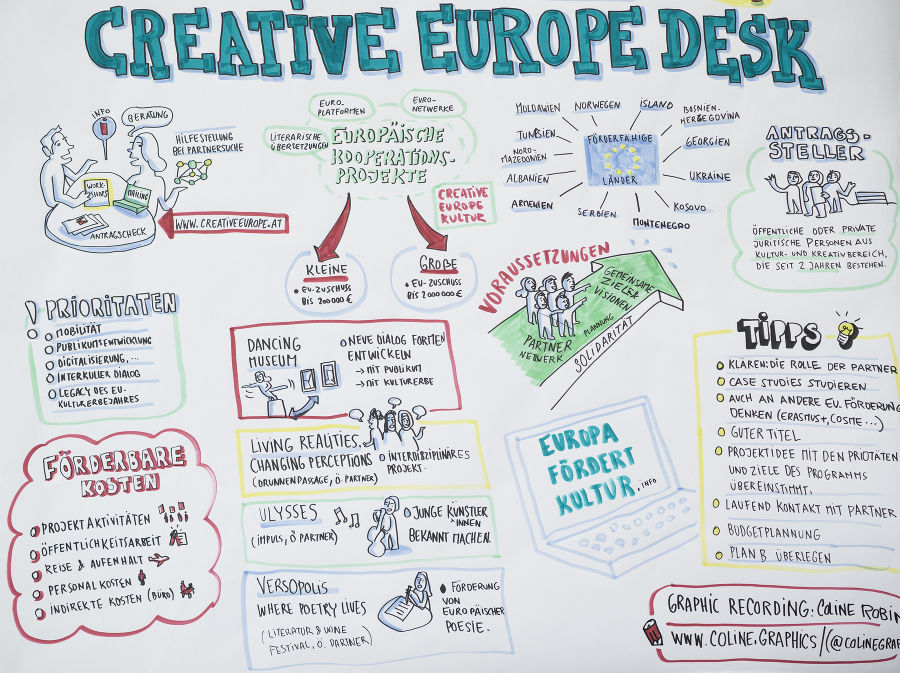 CREATIVE EUROPE DESK
INFO
BERATUNG
HILFESTELLUNG
BEI PARTNERSUCHE
WORK-
SHOPS
ANTRAGSCHECK
WWW.CREATIVEEUROPE.AT
EURO-
PLATFORMEN
EURO-
NETWERKE
LITERARISCHE
ÜBERSETZUNGEN
EUROPÄISCHE
KOOPERATIONS-
PROJEKTE
CREATIVE
EUROPE
KULTUR
KLEINE
• EU-ZUSCHUSS
BIS 200000 €
GROßE
• EU-ZUSCHUSS
BIS 2000000 €
MOLDAWIEN
NORWEGEN
ISLAND
BOSNIEN-
HERZEGOVINA
TUNESIEN
GEORGIEN
NORD-
MAZEDONIEN
ALBANIEN
UKRAINE
ARMENIEN
SERBIEN
MONTENEGRO
KOSOVO
FÖRDERFÄHIGE
LÄNDER
ANTRAGS-
STELLER
ÖFFENTLICHE ODER PRIVATE
JURITISCHE PERSONEN AUS
KULTUR- UND KREATIVBEREICH,
DIE SEIT 2 JAHREN BESTEHEN.
! PRIORITÄTEN
MOBILITÄT
PUBLIKUMSENTWICKLUNG
DIGITALISIERUNG,...
INTERKULLER DIALOG
LEGACY DES EU-
KULTURERBEJAHRES
FÖRDERBARE
KOSTEN
PROJEKTAKTIVITÄTEN
ÖFFENTLICHKEITSARBEIT
REISE & AUFENHALT
PERSONALKOSTEN
INDIREKTE KOSTEN (BÜRO)
DANCING
MUSEUM
NEUE DIALOG FORMEN
ENTWICKELN
→ MIT PUBLIKUM
→ MIT KULTURERBE
LIVING REALITIES,
CHANGING PERCEPTIONS
(BRUNNENPASSAGE, Ö. PARTNER)
INTERDISZIPLINÄRES
PROJEKT.
ULYSSES
(IMPULS, Ö PARTNER)
JUNGE KÜNSTLER
*INNEN
BEKANNT MACHEN.
VERSOPOLIS
WHERE POETRY LIVES
(LITERATUR & WINE
FESTIVAL, Ö. PARTNER)
• FÖRDERUNG
VON
EUROPÄISCHER
POESIE.
VORAUSSETZUNGEN
GEMEINSAME
ZIELE &
VISIONEN
PLANNUNG
PARTNER
NETWERK
SOLIDARITÄT
EUROPA
FÖRDERT
KULTUR.INFO
TIPPS
KLÄREN: DIE ROLLE DER PARTNER
CASE STUDIES STUDIEREN
AUCH AN ANDERE EU. FÖRDERUNG
DENKEN (ERASMUS+, COSME ...)
GUTER TITEL
PROJEKTIDEE MIT DEN PRIOTÄTEN
UND ZIELE DES PROGRAMMS
ÜBEREINSTIMMT.
LAUFEND KONTAKT MIT PARTNER
BUDGETPLANNUNG
PLAN B ÜBERLEGEN
GRAPHIC RECORDING: COLINE ROBIN
WWW.COLINE.GRAPHICS/(@COLINEGRAP